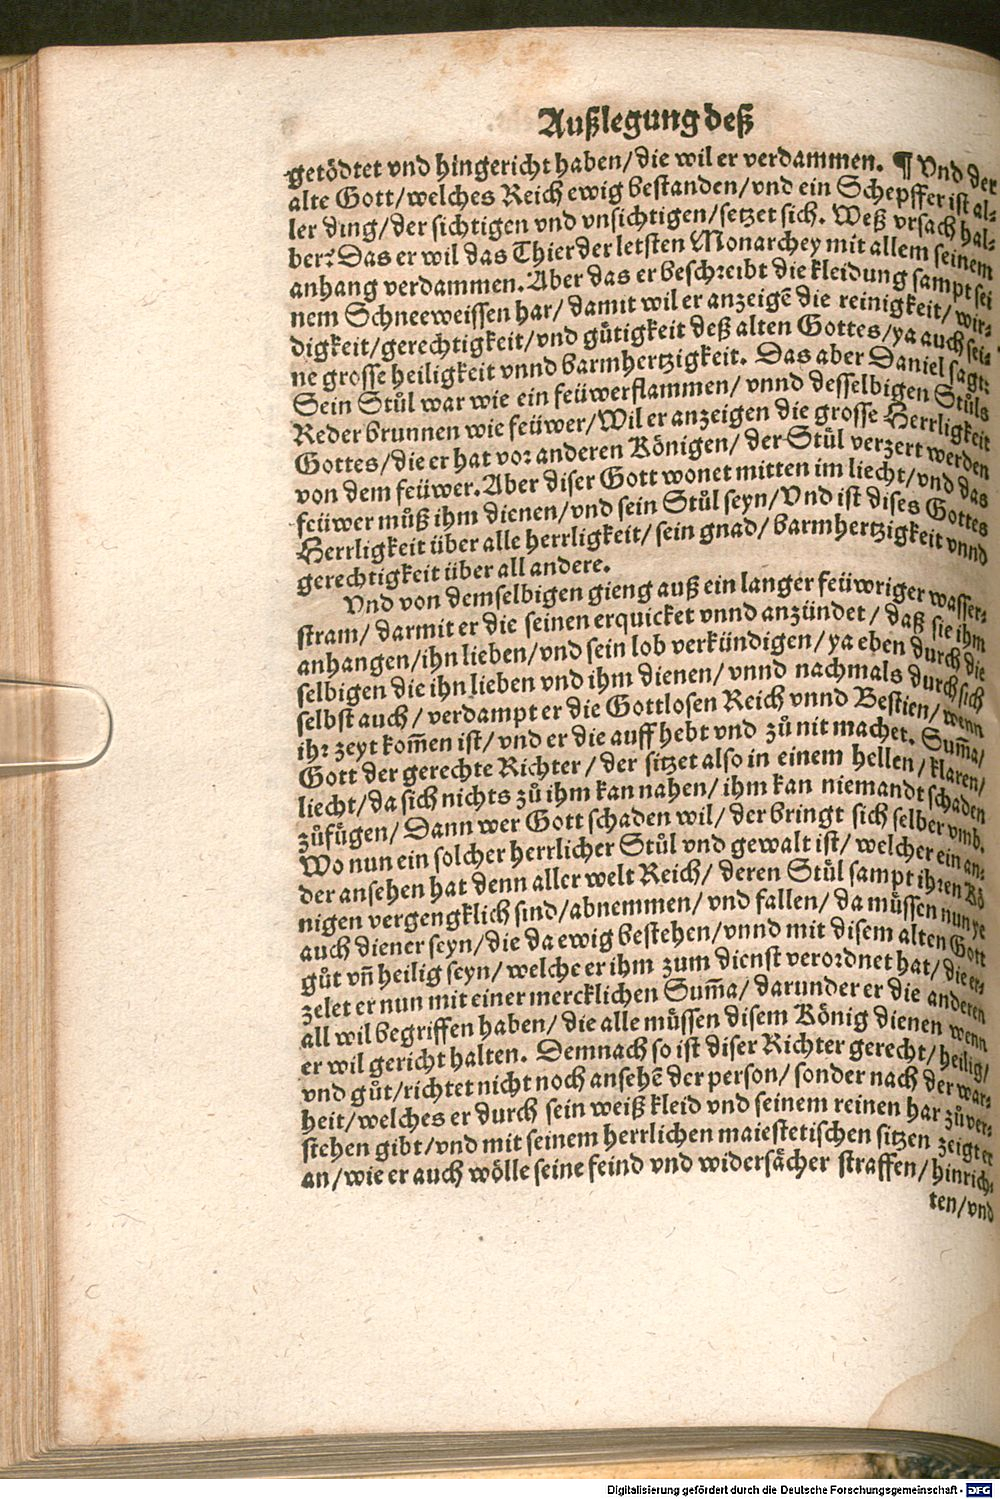 Außlegung deß
getödtet vnd hingericht haben/die wil er verdammen. ¶ Vnd der
alte Gott/welches Reich ewig bestanden/vnd ein Schepffer ist al⸗
ler ding/der sichtigen vnd vnsichtigen/setzet sich. Weß vrsach hal⸗
ber? Das er wil das Thier der letsten Monarchey mit allem seinem
anhang verdammen. Aber das er beschreibt die kleidung sampt sei
nem Schneeweissen har/damit wil er anzeigē die reinigkeit/wir⸗
digkeit/gerechtigkeit/vnd gůtigkeit deß alten Gottes/ya auch sei⸗
ne grosse heiligkeit vnnd barmhertzigkeit. Das aber Daniel sagt:
Sein Stůl war wie ein feüwerflammen/vnnd desselbigen Stůls
Reder brunnen wie feüwer/Wil er anzeigen die grosse Herrligkeit
Gottes/die er hat vor anderen Königen/der Stůl verzert werden
von dem feüwer. Aber diser Gott wonet mitten im liecht/vnd das
feüwer můß ihm dienen/vnd sein Stůl seyn/Vnd ist dises Gottes
Herrligkeit über alle herrligkeit/sein gnad/barmhertzigkeit vnnd
gerechtigkeit über all andere.
Vnd von demselbigen gieng auß ein langer feüwriger wasser⸗
stram/darmit er die seinen erquicket vnnd anzündet/daß sie ihm
anhangen/ihn lieben/vnd sein lob verkündigen/ya eben durch die
selbigen die ihn lieben vnd ihm dienen/vnnd nachmals durch sich
selbst auch/verdampt er die Gottlosen Reich vnnd Bestien/wenn
ihr zeyt kom̄en ist/vnd er die auff hebt vnd zů nit machet. Sum̄a/
Gott der gerechte Richter/der sitzet also in einem hellen/klaren/
liecht/da sich nichts zů ihm kan nahen/ihm kan niemandt schaden
zůfügen/Dann wer Gott schaden wil/der bringt sich selber vmb.
Wo nun ein solcher herrlicher Stůl vnd gewalt ist/welcher ein an⸗
der ansehen hat denn aller welt Reich/deren Stůl sampt ihren Kö
nigen vergengklich sind/abnemmen/vnd fallen/da müssen nun ye
auch diener seyn/die da ewig bestehen/vnnd mit disem alten Gott
gůt vn̄ heilig seyn/welche er ihm zum dienst verordnet hat/die er⸗
zelet er nun mit einer mercklichen Sum̄a/darunder er die anderen
all wil begriffen haben/die alle müssen disem König dienen wenn
er wil gericht halten. Demnach so ist diser Richter gerecht/heilig/
vnd gůt/richtet nicht noch ansehē der person/sonder nach der war⸗
heit/welches er durch sein weiß kleid vnd seinem reinen har zů ver⸗
stehen gibt/vnd mit seinem herrlichen maiestetischen sitzen zeigt er
an/wie er auch wölle seine feind vnd widersächer straffen/hinrich⸗
ten/vnd
Digitalisierung gefördert durch die Deutsche Forschungsgemeinschaft - DFG